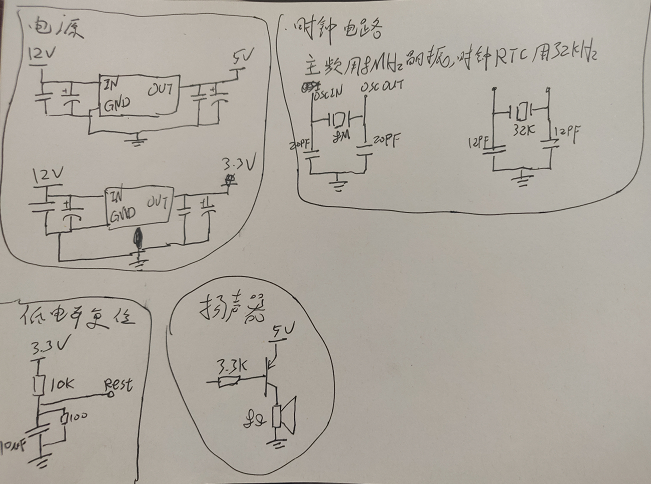 电源
12V
5V
IN
OUT
GND
12V
3.3V
IN
OUT
GND
时钟电路
主频用8MHz晶振,时钟RTC用32KHz
OSCIN
OSCOUT
20PF
8M
20PF
12PF
32K
12PF
低电平复位
3.3V
10K
Rest
100
10uF
扬声器
5V
3.3K
8Ω